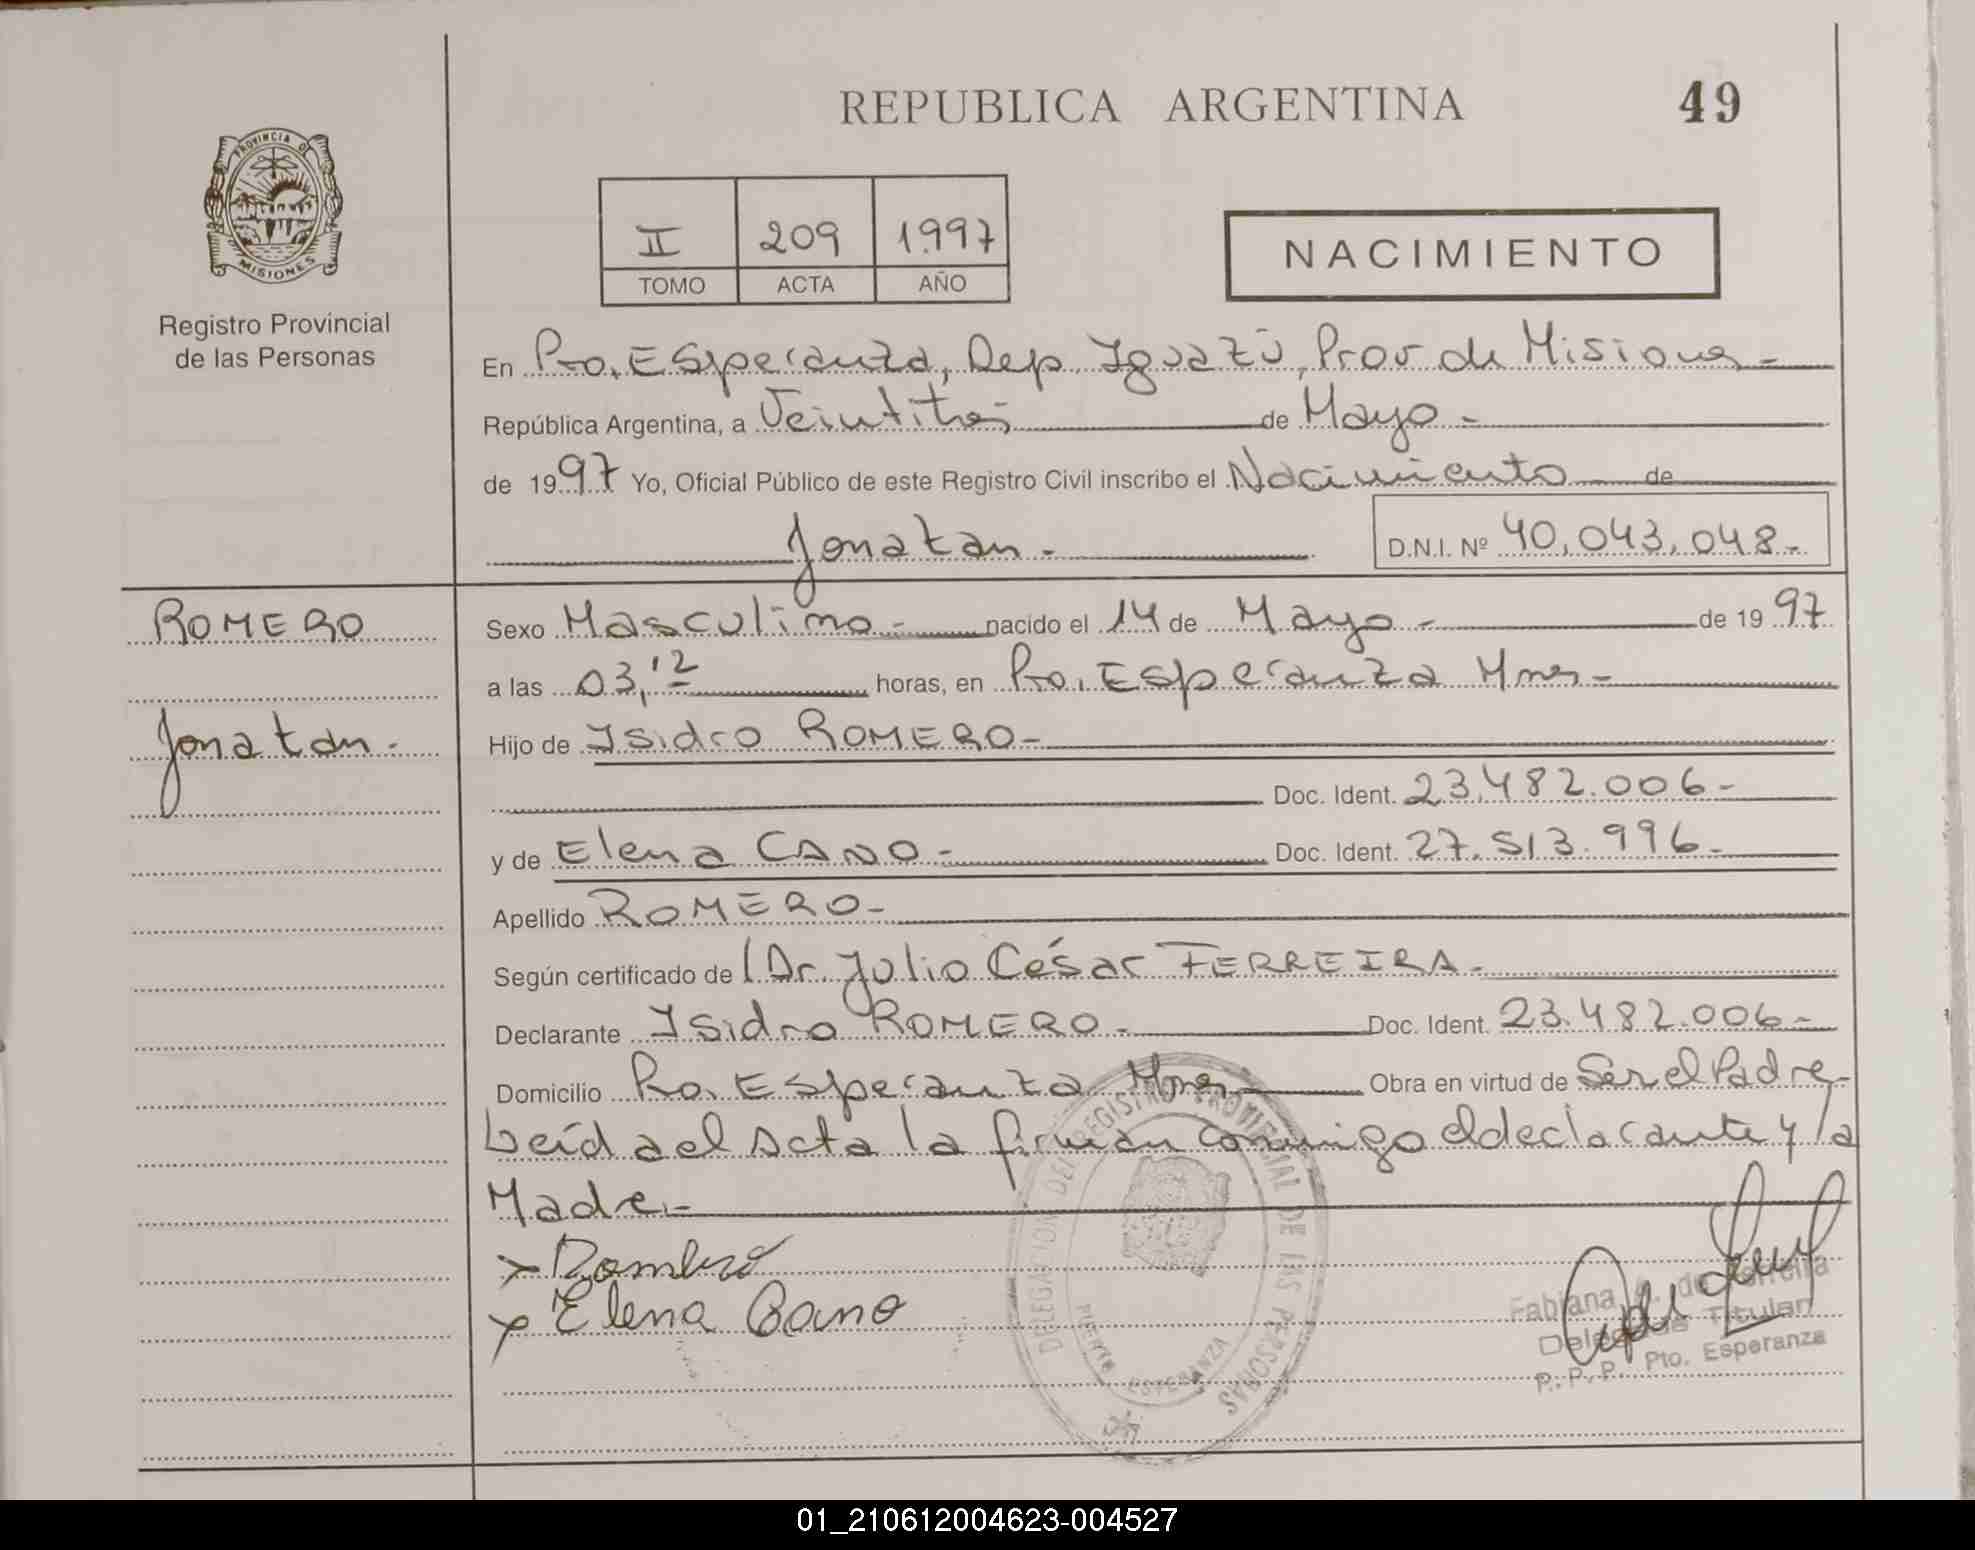 REPUBLICA ARGENTINA
49
PROVINCIA D
MISIONES
Registro Provincial
de las Personas
II 209 1.997
TOMO ACTA AÑO
NACIMIENTO
En Pto. Esperanza, Dep. Iguazú, Prov de Misiones -
República Argentina, a Veintitres de Mayo -
de 1997 Yo, Oficial Público de este Registro Civil inscribo el Nacimiento de
Jonatan -
D.N.I. Nº 40.043.048.-
ROMERO
Jonatan -
Sexo Masculino - nacido el 14 de Mayo - de 1997
a las 03,12 horas, en Pto. Esperanza Mnes -
Hijo de Isidro ROMERO -
Doc. Ident. 23.482.006 -
y de Elena CANO - Doc. Ident. 27.513.996 -
Apellido ROMERO -
Según certificado de l Dr. Julio César FERREIRA -
Declarante Isidro ROMERO - Doc. Ident. 23.482.006 -
Domicilio Pto. Esperanza Mnes - Obra en virtud de Ser el Padre -
Leída el Acta la firman conmigo el declarante y la
Madre.-
Elena Cano
DELEGACION DEL REGISTRO PROVINCIAL DE LAS PERSONAS
PUERTO ESPERANZA
Fabiana A. de Ferreira
Delegada Titular
R. P. P. Pto. Esperanza
01_210612004623-004527